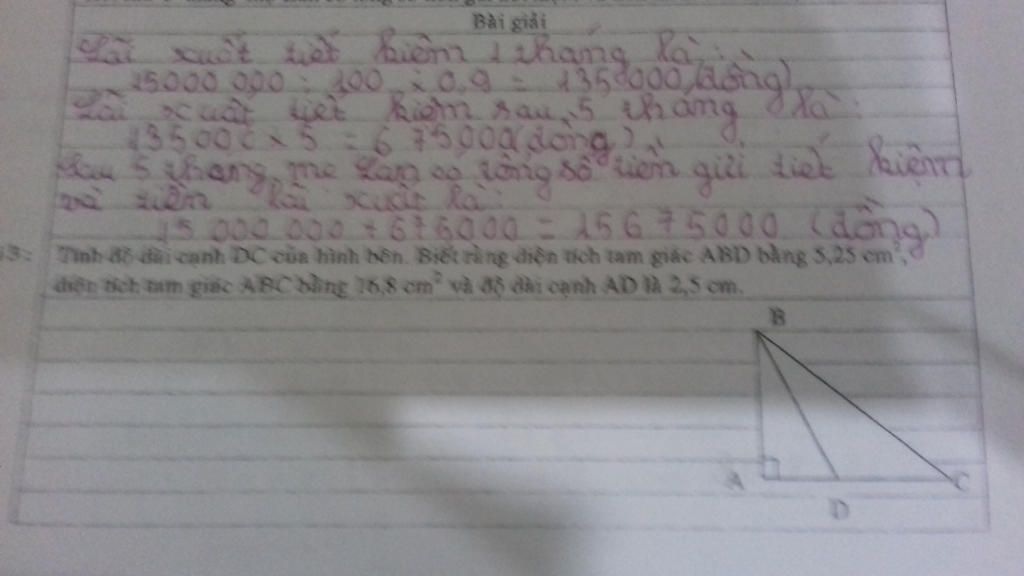 Bài giải
Lãi xuất tiết kiệm 1 tháng là:
15000 000 : 100 x 0,9 = 135000 (đồng)
Lãi xuất tiết kiệm sau 5 tháng là:
135000 x 5 = 675000 (đồng)
Sau 5 tháng, mẹ Lan có tổng số tiền gửi tiết kiệm
và tiền lãi xuất là:
15 000 000 + 675000 = 15675000 (đồng)
Tính độ dài cạnh DC của hình bên. Biết rằng diện tích tam giác ABD bằng 5,25 cm²,
diện tích tam giác ABC bằng 16,8 cm² và độ dài cạnh AD là 2,5 cm.
B
A
C
D